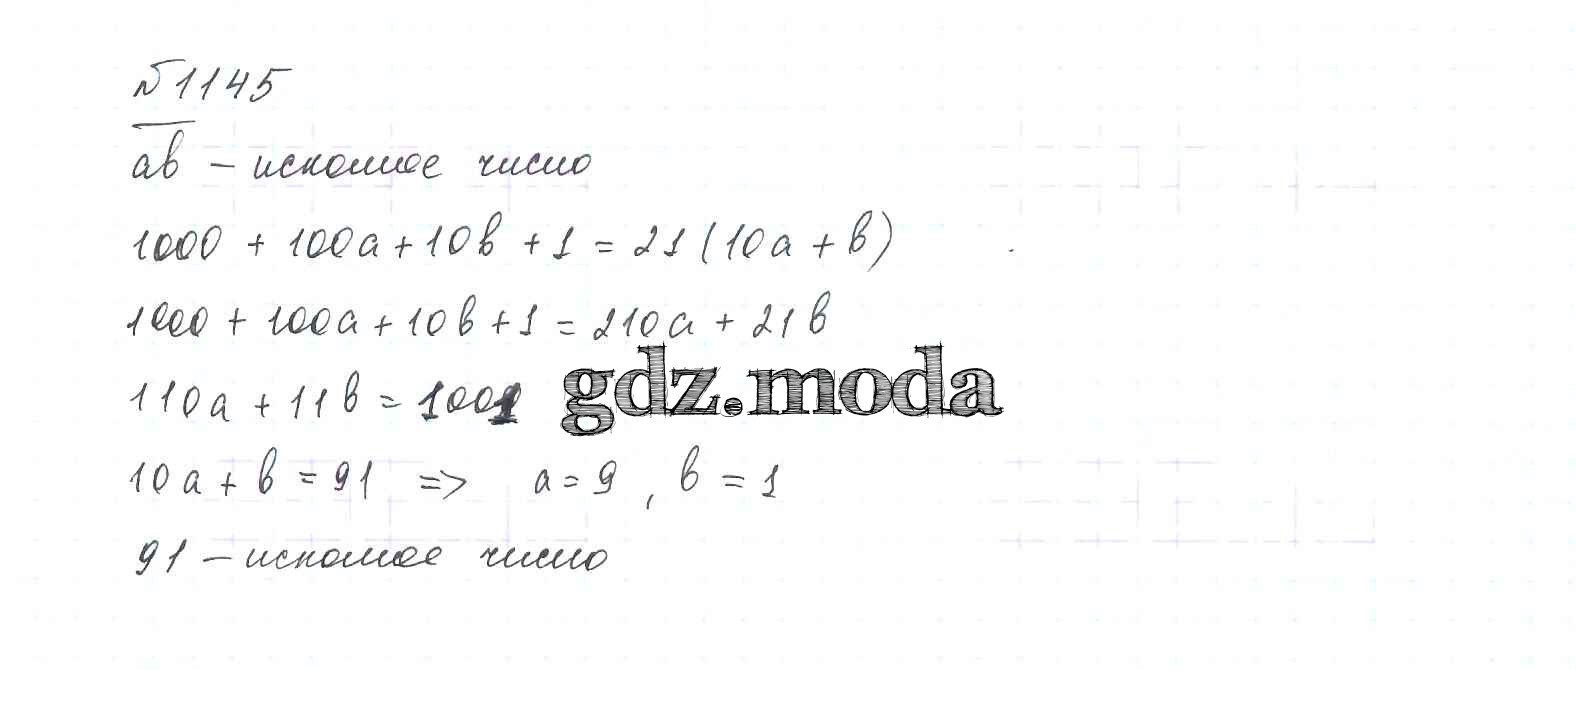 №1145
ab – искомое число
1000 + 100a + 10b + 1 = 21(10a + b)
1000 + 100a + 10b + 1 = 210a + 21b
110a + 11b = 1001
gdz.moda
10a + b = 91 => a = 9, b = 1
91 – искомое число